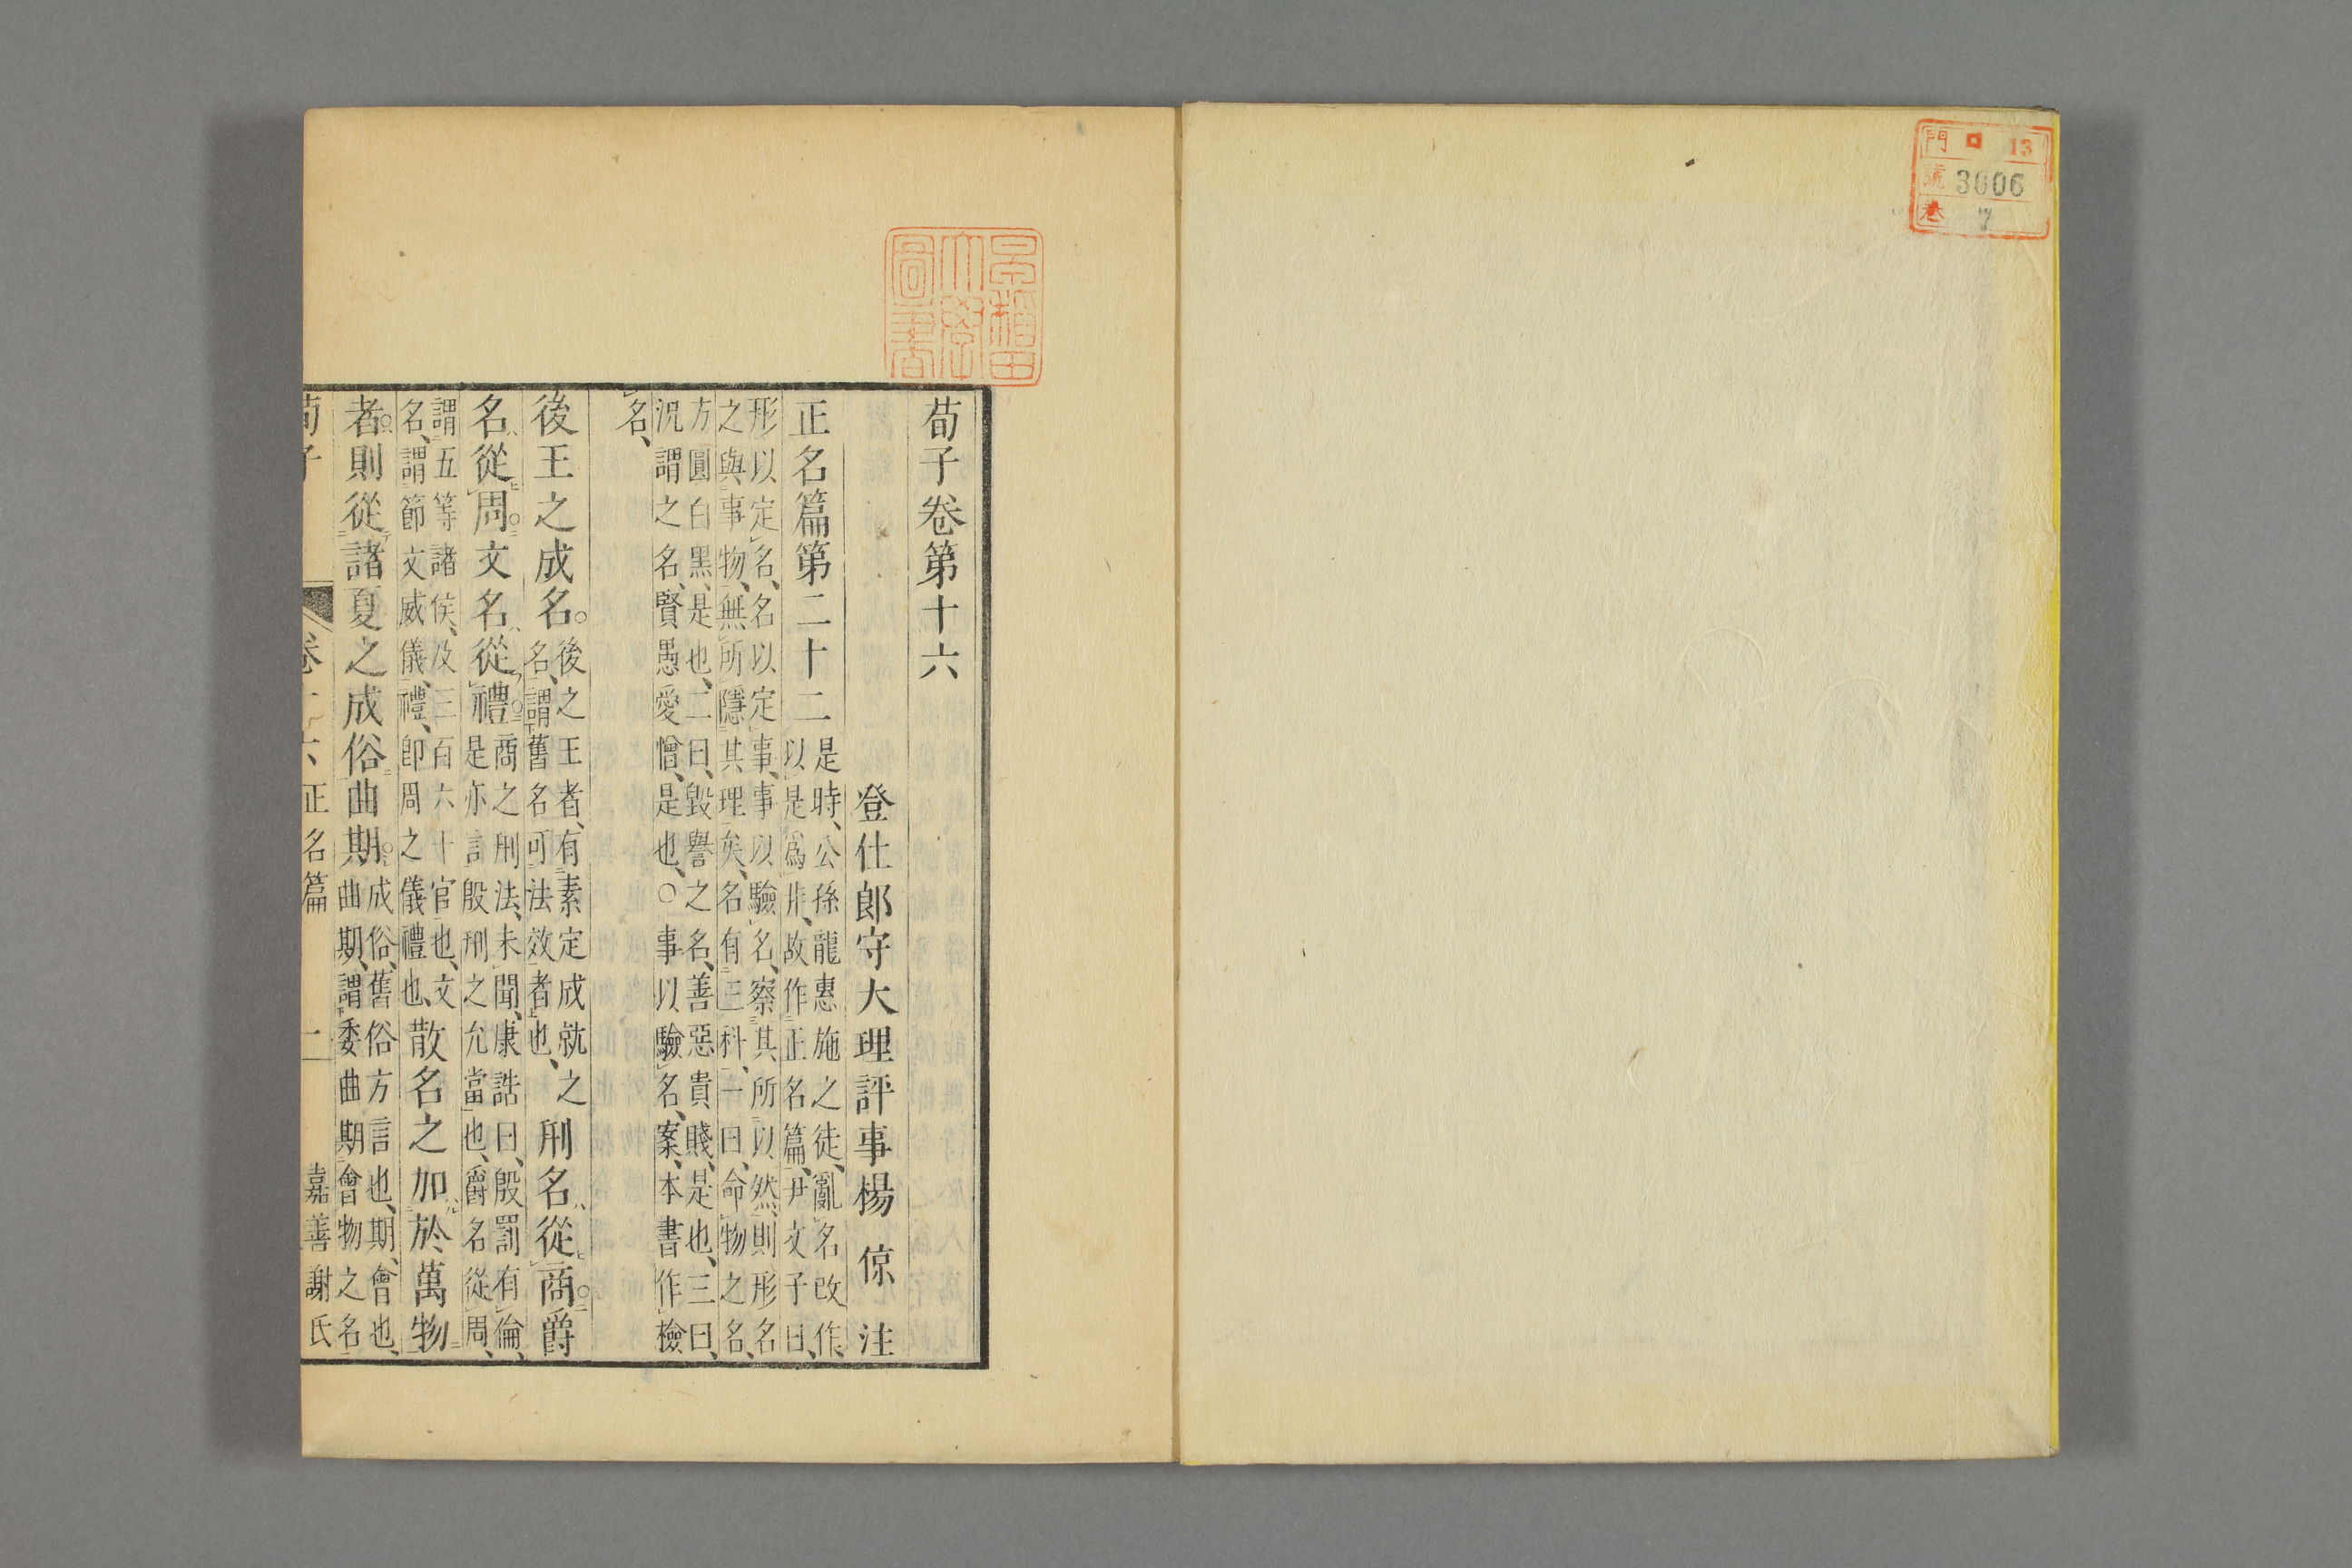 門 13
號 3006
巻 7
早稲田大學圖書
荀子卷第十六
登仕郎守大理評事楊倞注
正名篇第二十二
是時、公孫龍惠施之徒、亂名改作、
以是爲非、故作正名篇、尹文子曰、
形以定名、名以定事、事以驗名、察其所以然、則形名
之與事物、無所隱其理矣、名有三科、一曰、命物之名、
方圓白黑、是也、二曰、毀譽之名、善惡貴賤、是也、三曰、
況謂之名、賢愚愛憎、是也、○事以驗名、案、本書作檢
名、
後王之成名。
後之王者、有素定成就之
名、謂舊名可法效者也、
刑名從商爵
名從周文名從禮
商之刑法、未聞、康誥曰、殷罰有倫、
是亦言殷刑之允當也、爵名從周、
謂五等諸侯、及三百六十官也、文
名、謂節文威儀、禮、卽周之儀禮也、
散名之加於萬物
者。則從諸夏之成俗曲期。
成俗、舊俗方言也、期、會也、
曲期、謂委曲期會物之名
荀子 卷十六 正名篇 一 嘉善謝氏